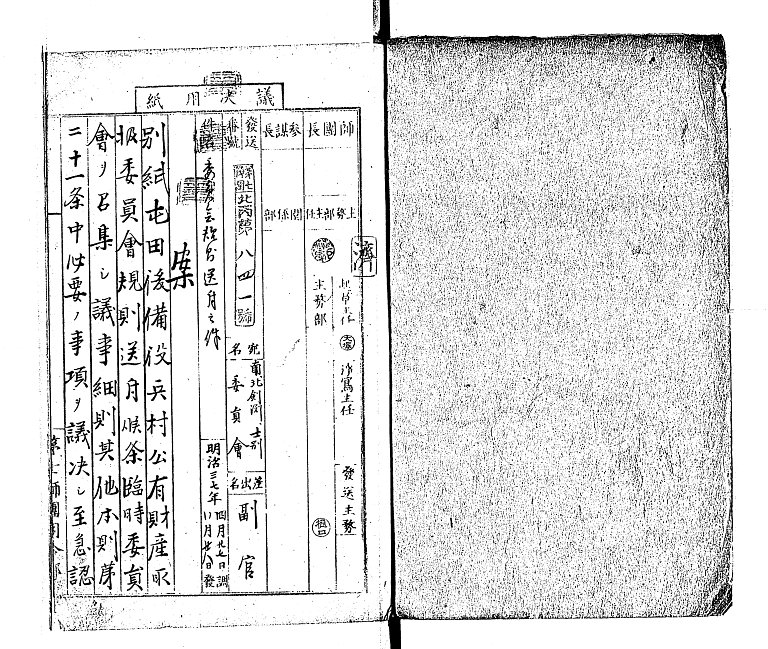 議決用紙
師團長
參謀長
主務部主任
關係部
濟
主務部
淨寫主任
發送主務
發送
番號
北丙第八四一號
宛名
委員會
士別
差出名
副官
件名
委員会規則送付之件
明治三七年
四月廿七日調
案
別紙屯田後備役兵村公有財産取
扱委員會規則送付候条臨時委員
會ヲ召集シ議事細則其他本則第
二十一条中必要ノ事項ヲ議决シ至急認
第七師團司令部